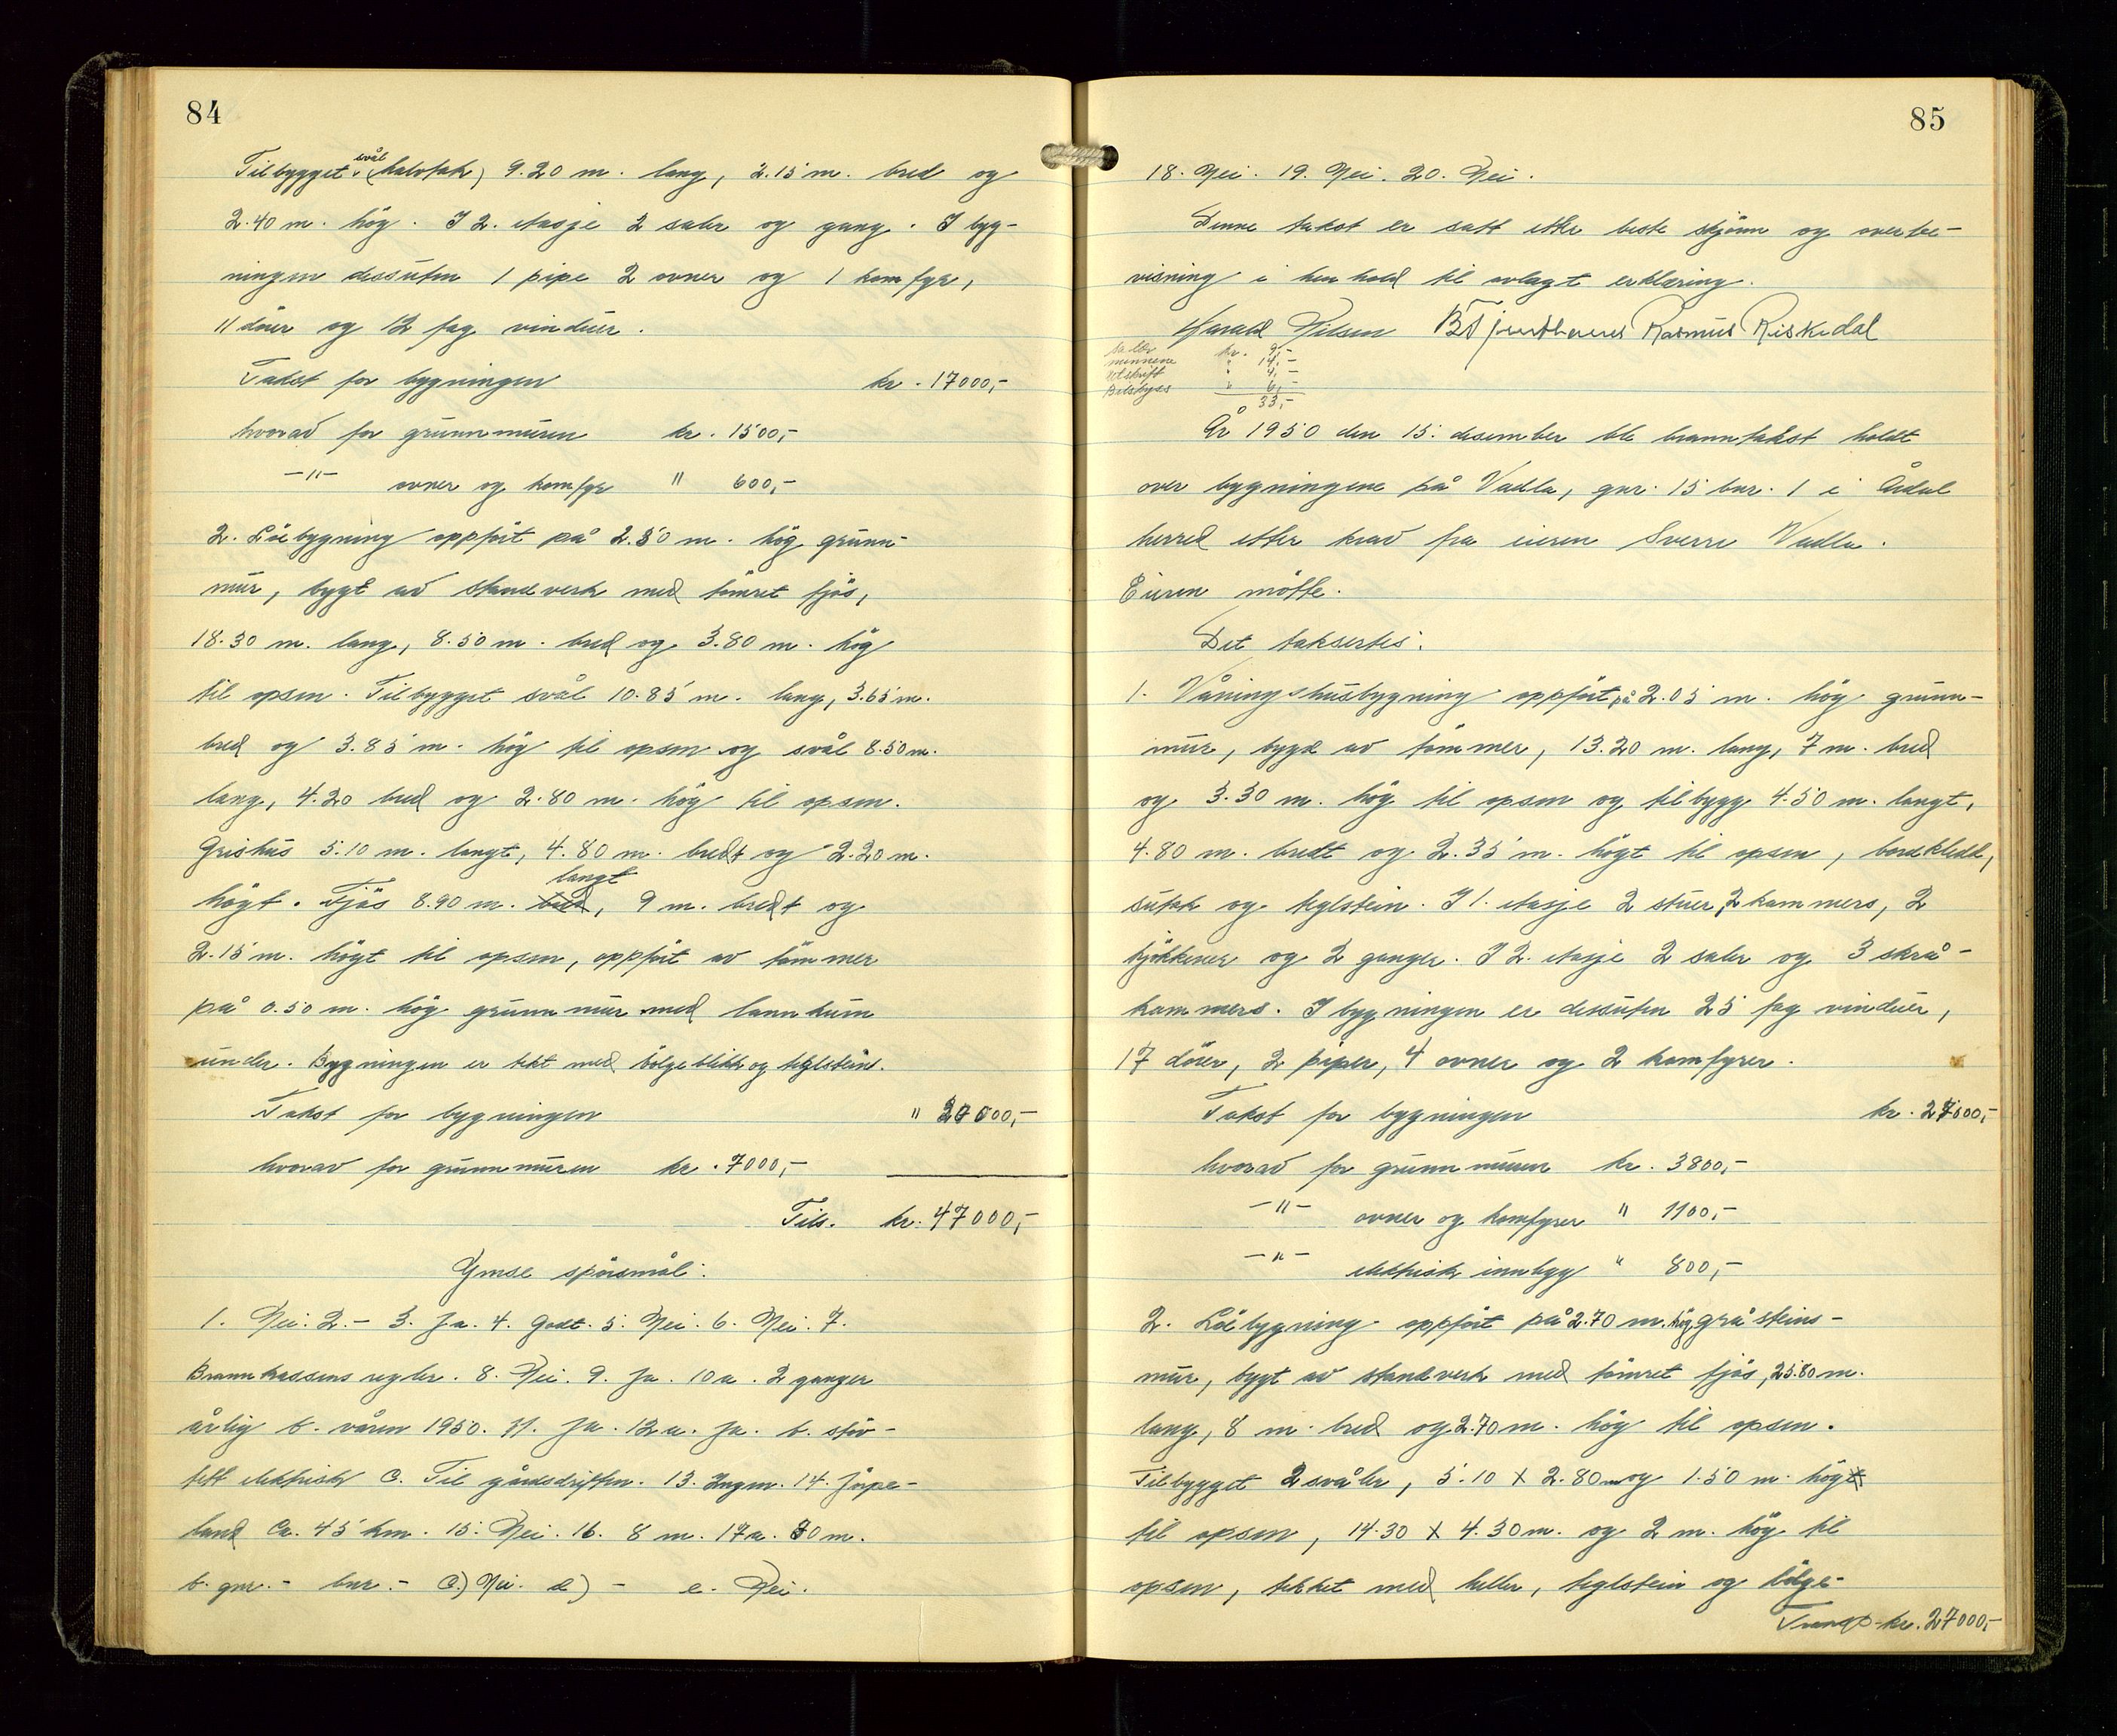 84
Tilbygget svål (halvtak) 9.20 m. lang, 2.15 m. bred og
2.40 m. hög. I 2. etasje 2 saler og gang. I byg-
ningen dessuten 1 pipe 2 ovner og 1 komfyr,
11 dörer og 12 fag vinduer.
Takst for bygningen kr. 17000,-
hvorav for grunnmuren kr. 1500,-
-"- ovner og komfyr " 600,-
2. Löebygning oppfört på 2.50 m. hög grunn-
mur, bygt av standverk med tömret fjös,
18.30 m. lang, 8.50 m. bred og 3.80 m. hög
til opsen. Tilbygget svål 10.85 m. lang, 3.65 m.
bred og 3.85 m. hög til opsen og svål 8.50 m.
lang, 4.20 bred og 2.80 m. hög til opsen.
Grishus 5.10 m. langt, 4.80 m. bredt og 2.20 m.
högt. Fjös 8.90 m. langt, 9 m. bredt og
2.15 m. högt til opsen, oppfört av tömmer
på 0.50 m. hög grunnmur med lannkum
under. Bygningen er tekt med bölgeblikk og teglstein.
Takst for bygningen " 30000,-
hvorav for grunnmuren kr. 7000,-
Tils. kr. 47000,-
Ymse spörsmål:
1. Nei. 2. - 3. Ja. 4. Godt. 5. Nei. 6. Nei. 7.
Brannkassens regler. 8. Nei. 9. Ja. 10a. 2 ganger
årlig b. våren 1950. 11. Ja. 12a. Ja. b. stöv-
tett elektrisk C. Til gårdsdriften. 13. Ingen. 14. Jörpe-
land Ca. 45 km. 15. Nei. 16. 8 m. 17a. 30 m.
b. gnr. - bnr. - C.) Nei. d) - e. Nei.
85
18. Nei. 19. Nei. 20. Nei.
Denne takst er satt etter beste skjönn og overbe-
visning i henhold til avlagt erklæring.
Harald Nilsen Rasmus Riskedal
kr. 9,-
mennene " 14,-
Utskrift " 4,-
Bilskyss " 6,-
33,-
År 1950 den 15. desember ble branntakst holdt
over bygningene på Vadla, gnr. 15 bnr. 1 i Årdal
herred etter krav fra eieren Sverre Vadla.
Eieren mötte.
Det taksertes:
1. Våningshusbygning oppfört på 2.05 m. hög grunn-
mur, bygd av tömmer, 13.20 m. lang, 7 m. bred
og 3.30 m. hög til opsen og tilbygg 4.50 m. langt,
4.80 m. bredt og 2.35 m. högt til opsen, bordkledd,
sutak og teglstein. I 1. etasje 2 stuer, 2 kammers, 2
kjökkener og 2 ganger. I 2. etasje 2 saler og 3 skrå-
kammers. I bygningen er dessuten 25 fag vinduer,
17 dörer, 2 piper, 4 ovner og 2 komfyrer.
Takst for bygningen kr. 27000,-
hvorav for grunnmuren kr. 3800,-
-"- ovner og komfyrer " 1100,-
-"- elektrisk innbygg " 800,-
2. Löebygning oppfört på 2.70 m. hög gråsteins-
mur, bygt av standverk med tömret fjös, 25.80 m.
lang, 8 m. bred og 2.70 m. hög til opsen.
Tilbygget 2 svåler, 5.10 X 2.80 m og 1.50 m. hög
til opsen, 14.30 X 4.30 m. og 2 m. hög til
opsen, tekket med heller, teglstein og bölge-
Transp. kr. 27000,-